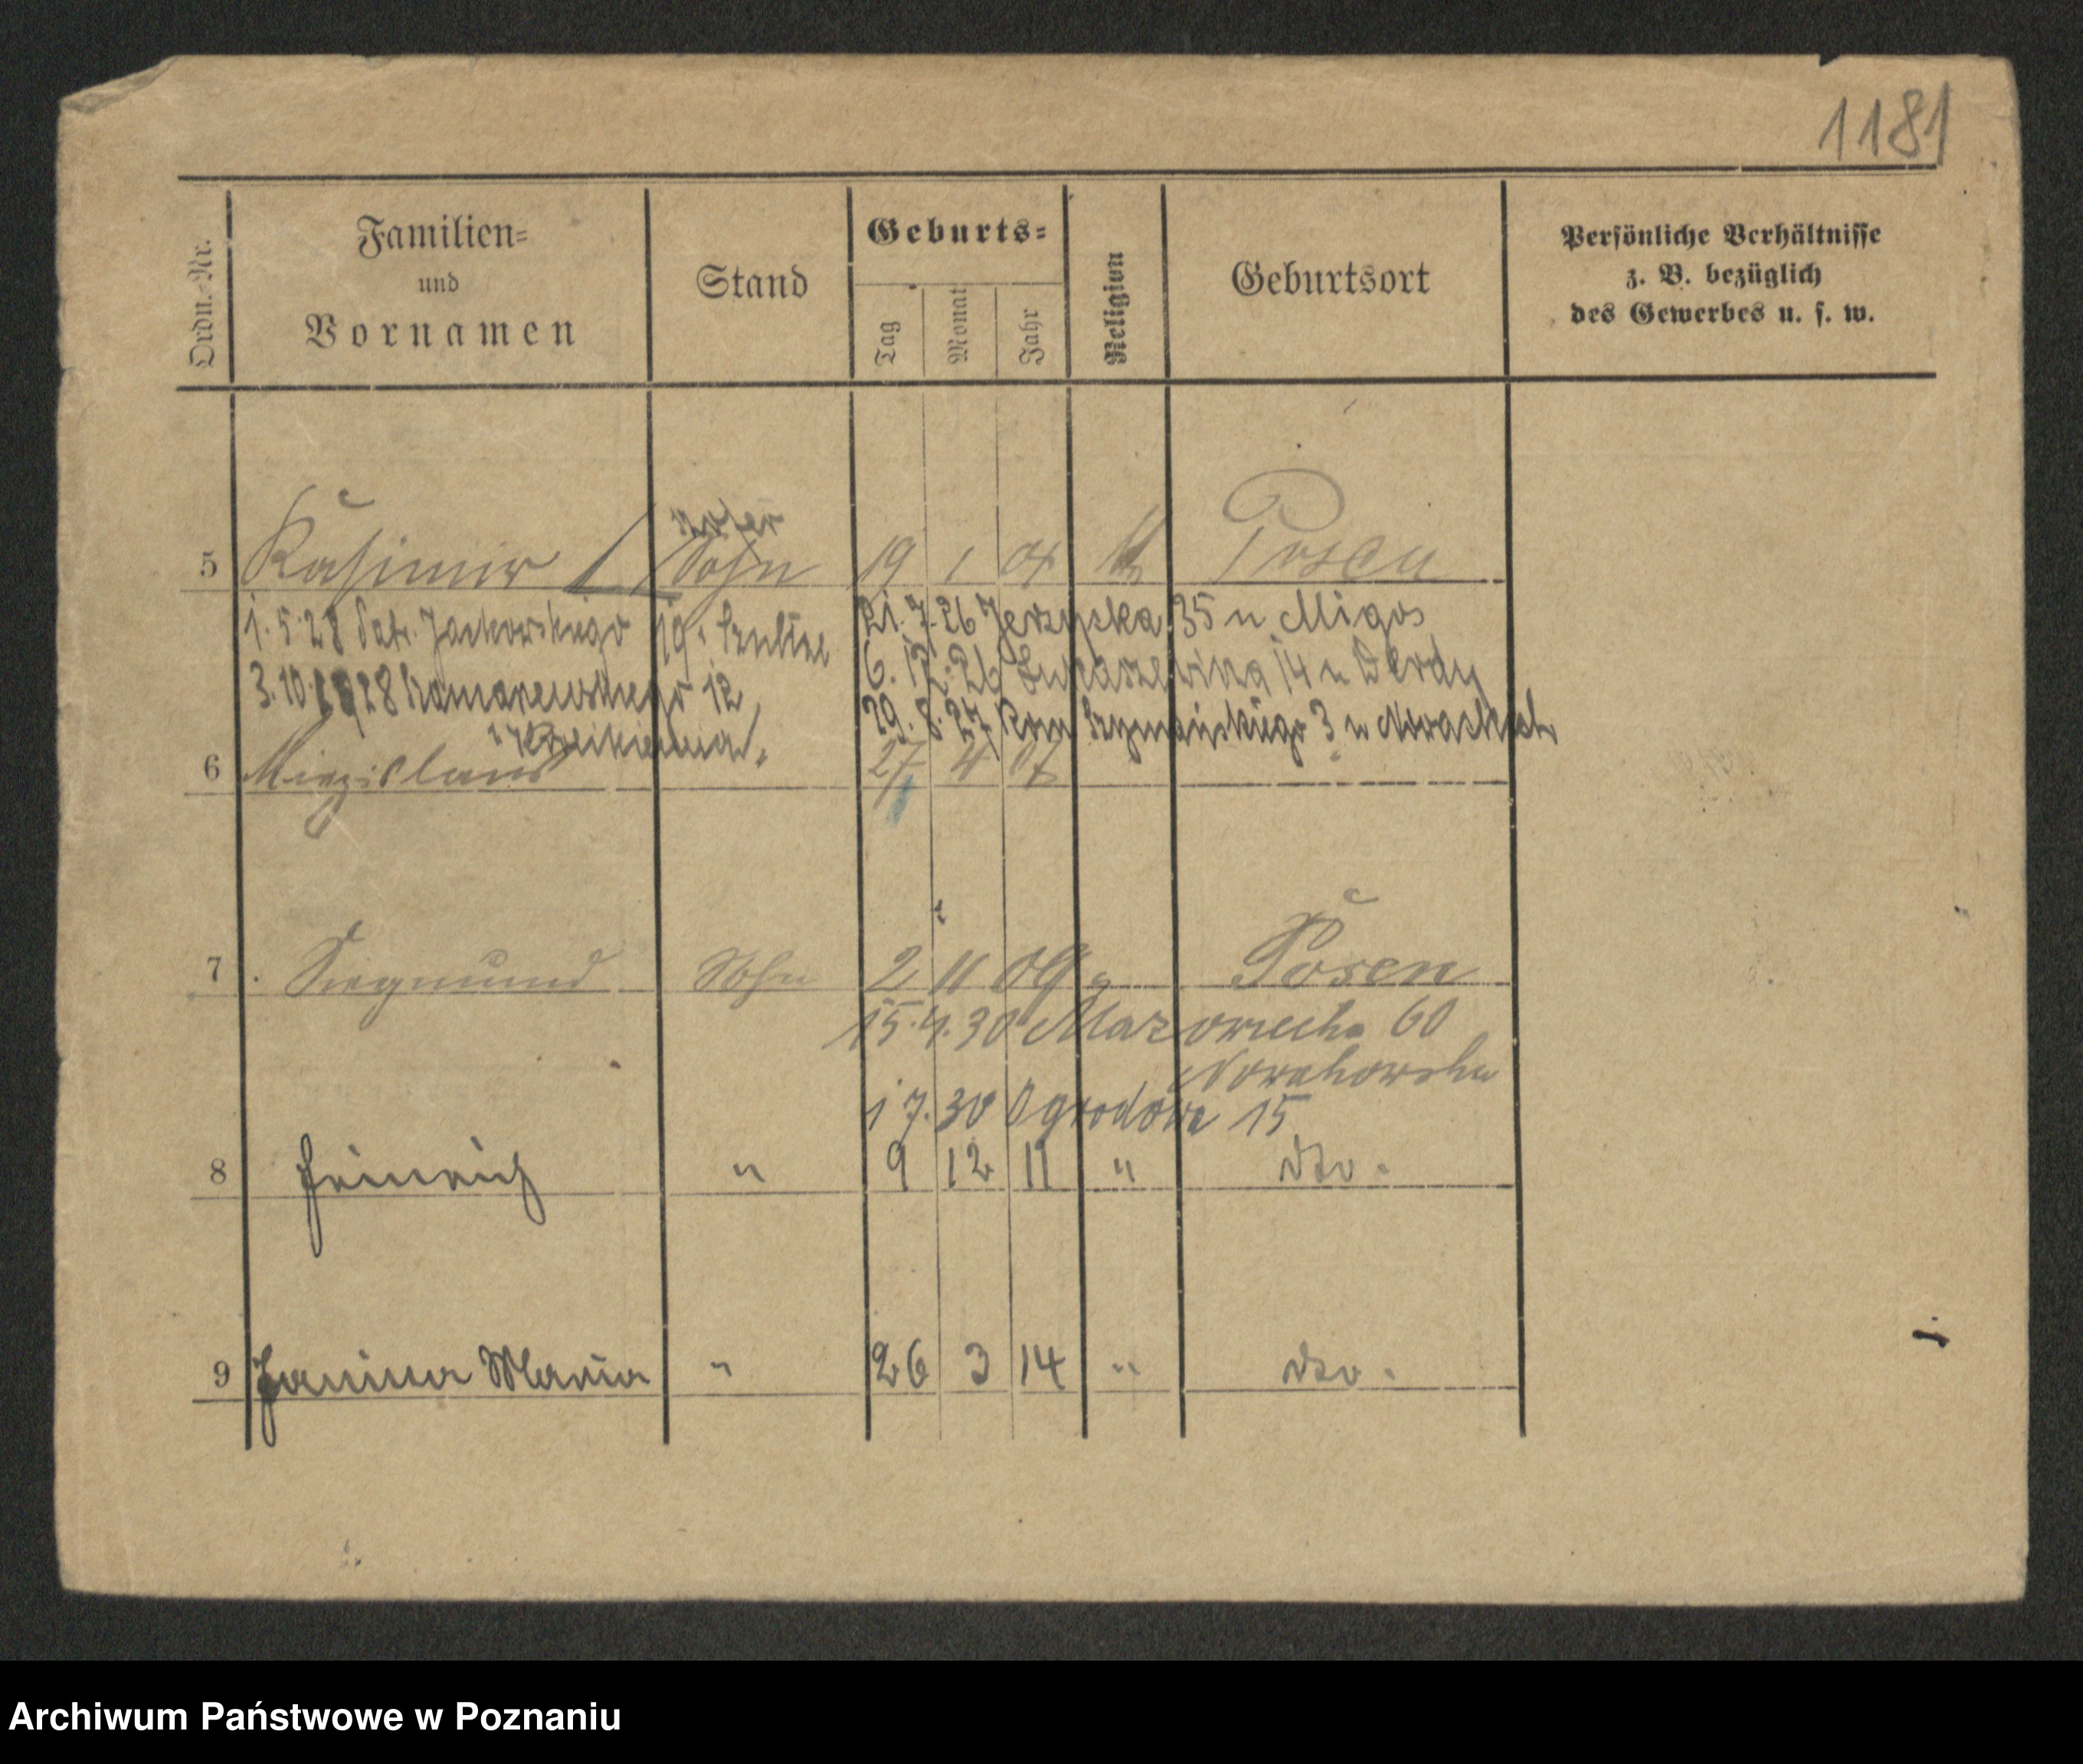 1181
Ordn.-Nr.
Familien-
und
Vornamen
Stand
Geburts-
Tag
Monat
Jahr
Religion
Geburtsort
Persönliche Verhältnisse
z. B. bezüglich
des Gewerbes u. s. w.
5 Kasimir Sohn 19 1 Posen
1.5.28 Patr. Jackowskiego 19
21.7.26 Jerzycka 35 u Migos
3.10.1928 12
6.12.26 Łukaszewicza 14 u
29.8.27 Rom Szymańskiego 3 u
6 Miezislaus 27 4 07
7 Siegmund Sohn 2 11 09 " Posen
15.4.30 Mazowiecka 60
Nowakowska
1 7.30 Ogrodowa 15
8 Heinrich " 9 12 11 " dto.
9 Janina Maria " 26 3 14 " dto.
Archiwum Państwowe w Poznaniu